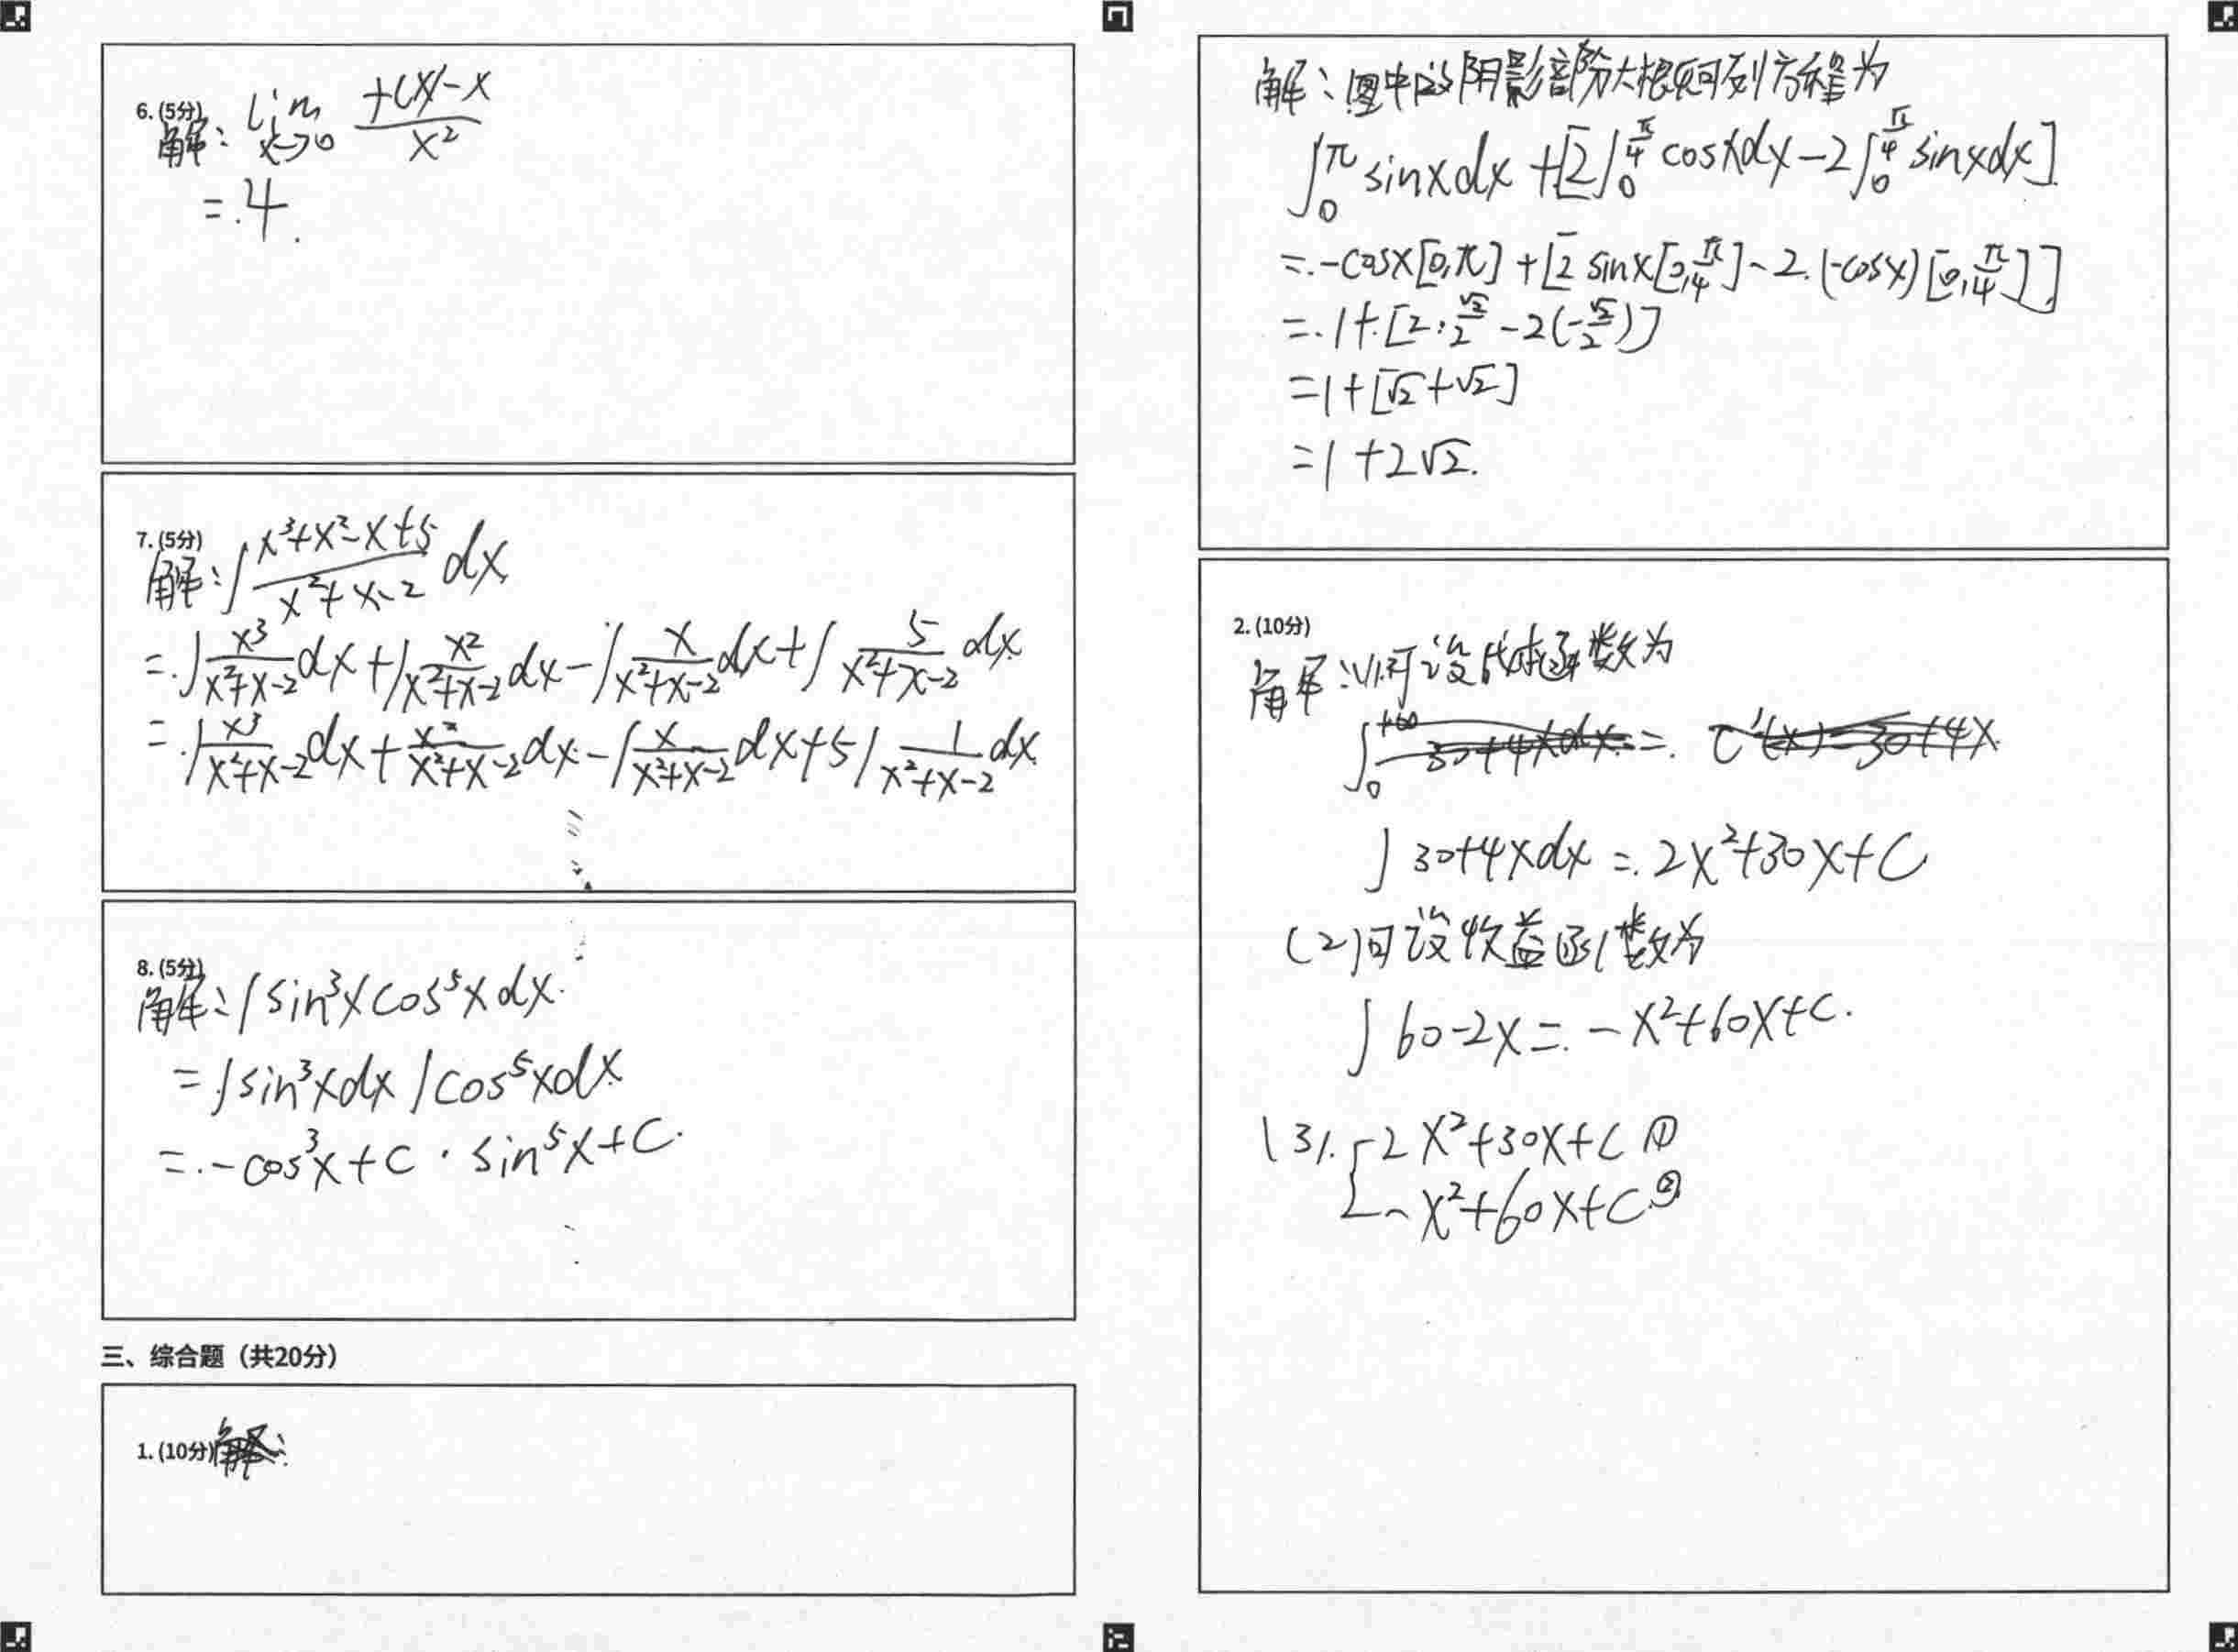 6. (5分)
解: lim x→0 (f(x)-x)/x²
= 4.
7. (5分)
解: ∫ (x³+x²-x+5)/(x²+x-2) dx
= ∫ x³/(x²+x-2) dx + ∫ x²/(x²+x-2) dx - ∫ x/(x²+x-2) dx + ∫ 5/(x²+x-2) dx
= ∫ x³/(x²+x-2) dx + x²/(x²+x-2) dx - ∫ x/(x²+x-2) dx + 5∫ 1/(x²+x-2) dx
8. (5分)
解: ∫ sin³x cos⁵x dx.
= ∫ sin³x dx ∫ cos⁵x dx
= -cos³x + C · sin⁵x + C.
三、综合题（共20分）
1. (10分) 解:
解: 图中的阴影部分大概可列方程为
∫₀^π sinx dx + [2∫₀^(π/4) cosx dx - 2∫₀^(π/4) sinx dx].
= -cosx[0,π] + [2 sinx[0,π/4] - 2·(-cosx)[0,π/4]]
= 1+[2·√2/2 - 2(-√2/2)]
= 1+[√2+√2]
= 1+2√2.
2. (10分)
解: (1)可设成本函数为
∫₀^(+∞) 30+4xdx = C'(x)=30+4x
∫ 30+4xdx = 2x²+30x+C
(2)可设收益函数为
∫ 60-2x = -x²+60x+C.
(3). { 2x²+30x+C ①
-x²+60x+C ②